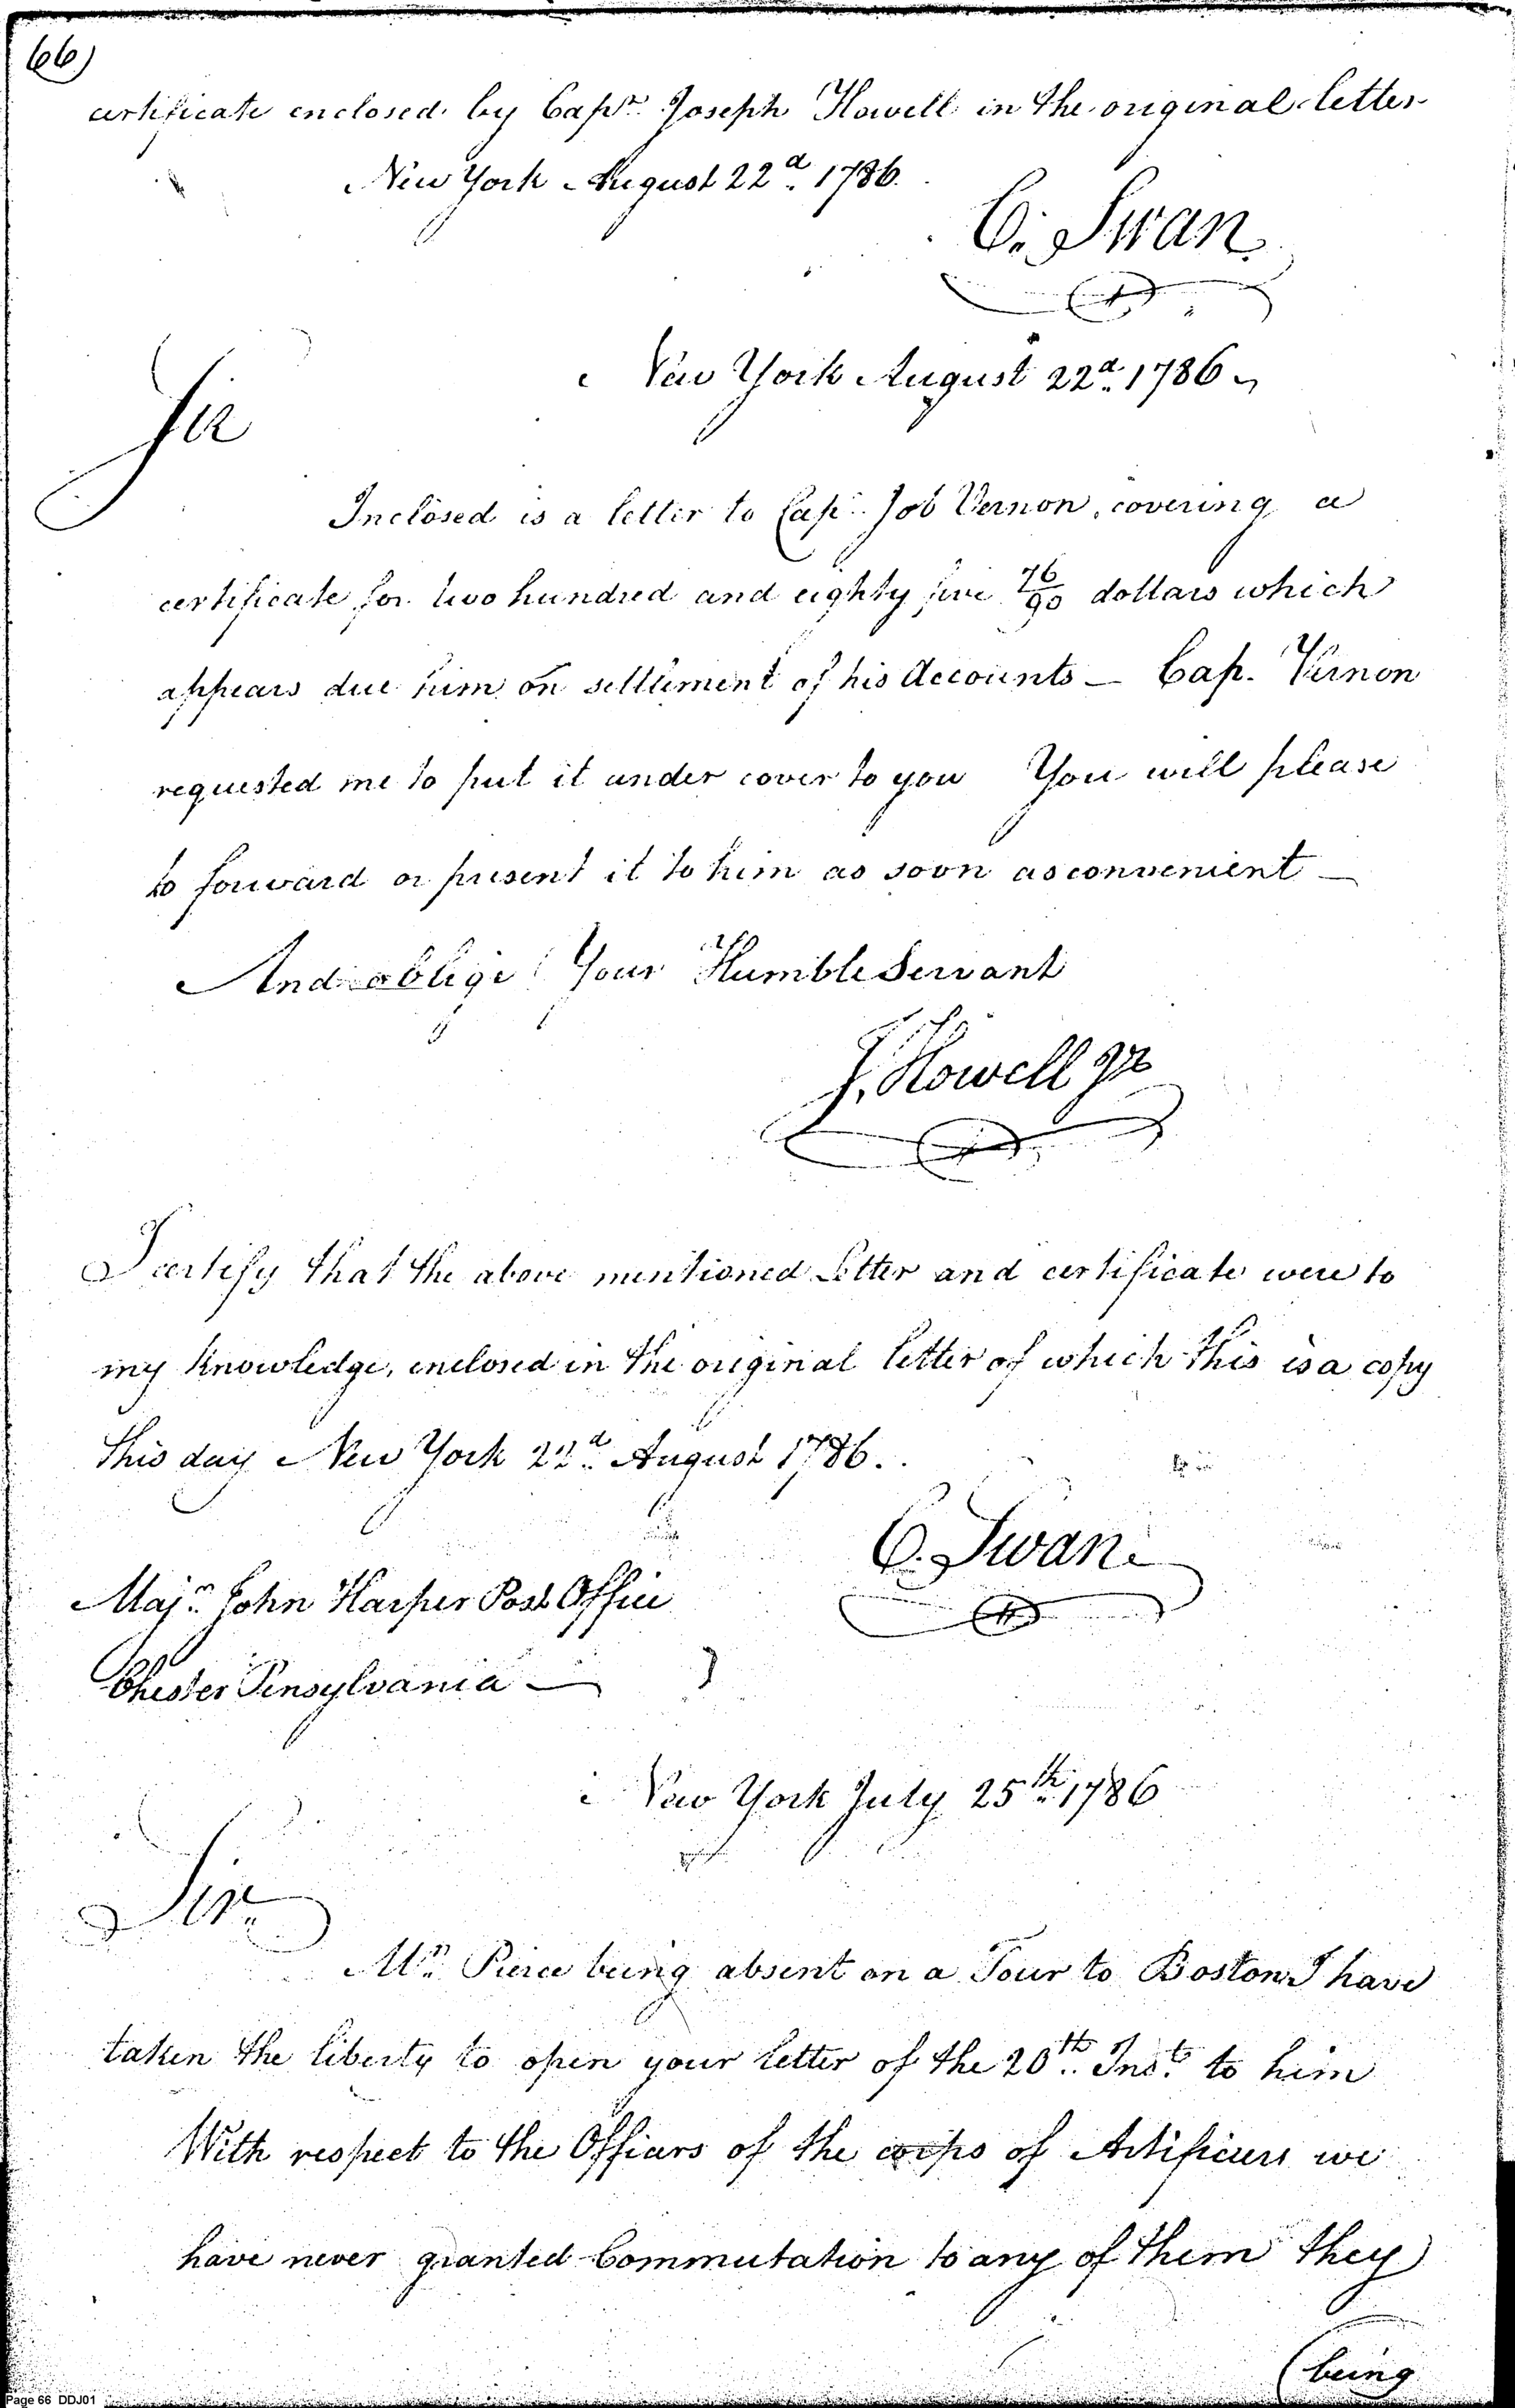 66)
certificate enclosed by Capt. Joseph Howell in the original letter
New York August 22d. 1786.
C. Swan
New York August 22d. 1786
Sir
Inclosed is a letter to Cap. Job Vernon, covering a
certificate for two hundred and eighty five 76/90 dollars which
appears due him on settlement of his Accounts — Cap. Vernon
requested me to put it under cover to you You will please
to forward or present it to him as soon as convenient —
And oblige Your Humble Servant
J. Howell Jr
I certify that the above mentioned Letter and certificate were to
my knowledge, enclosed in the original letter of which this is a copy
This day New York 22d. August 1786.
C. Swan
Majr. John Harper Post Office
Chester Pensylvania —
New York July 25th. 1786
Sir
Mr. Pierce being absent on a Tour to Boston I have
taken the liberty to open your letter of the 20th. Inst. to him
With respect to the Officers of the corps of Artificers we
have never granted Commutation to any of them they
(being
Page 66 DDJ01